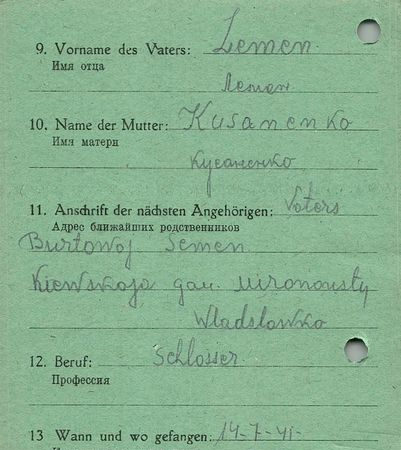 9. Vorname des Vaters: Semen
Имя отца
Леман
10. Name der Mutter: Kusanenko
Имя матери
Кусаненко
11. Anschrift der nächsten Angehörigen: Vaters
Адрес ближайших родственников
Burtowoj Semen
Kiewskoja gau. Mironowsky
Wladslowko
12. Beruf: Schlosser
Профессия
13 Wann und wo gefangen: 14-7-41-